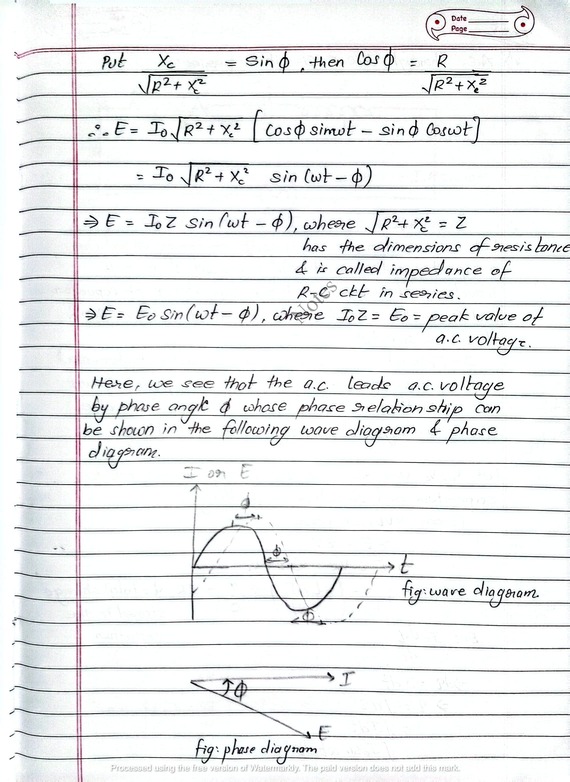 Date
Page
Put Xc / √R² + Xc² = Sin ϕ, then Cos ϕ = R / √R² + Xc²
∴ E = I₀ √R² + Xc² [cos ϕ sin ωt − sin ϕ Cos ωt]
= I₀ √R² + Xc² sin (ωt − ϕ)
⇒ E = I₀Z sin (ωt − ϕ), where √R² + Xc² = Z
has the dimensions of resistance
& is called impedance of
R-C ckt in series.
Notes
⇒ E = E₀ sin (ωt − ϕ), where I₀Z = E₀ = peak value of
a.c. voltage.
Here, we see that the a.c. leads a.c. voltage
by phase angle ϕ whose phase relationship can
be shown in the following wave diagram & phase
diagram.
I or E
ϕ
ϕ
t
fig: wave diagram
ϕ
I
ϕ
E
fig: phase diagram
Processed using the free version of Watermarkly. The paid version does not add this mark.